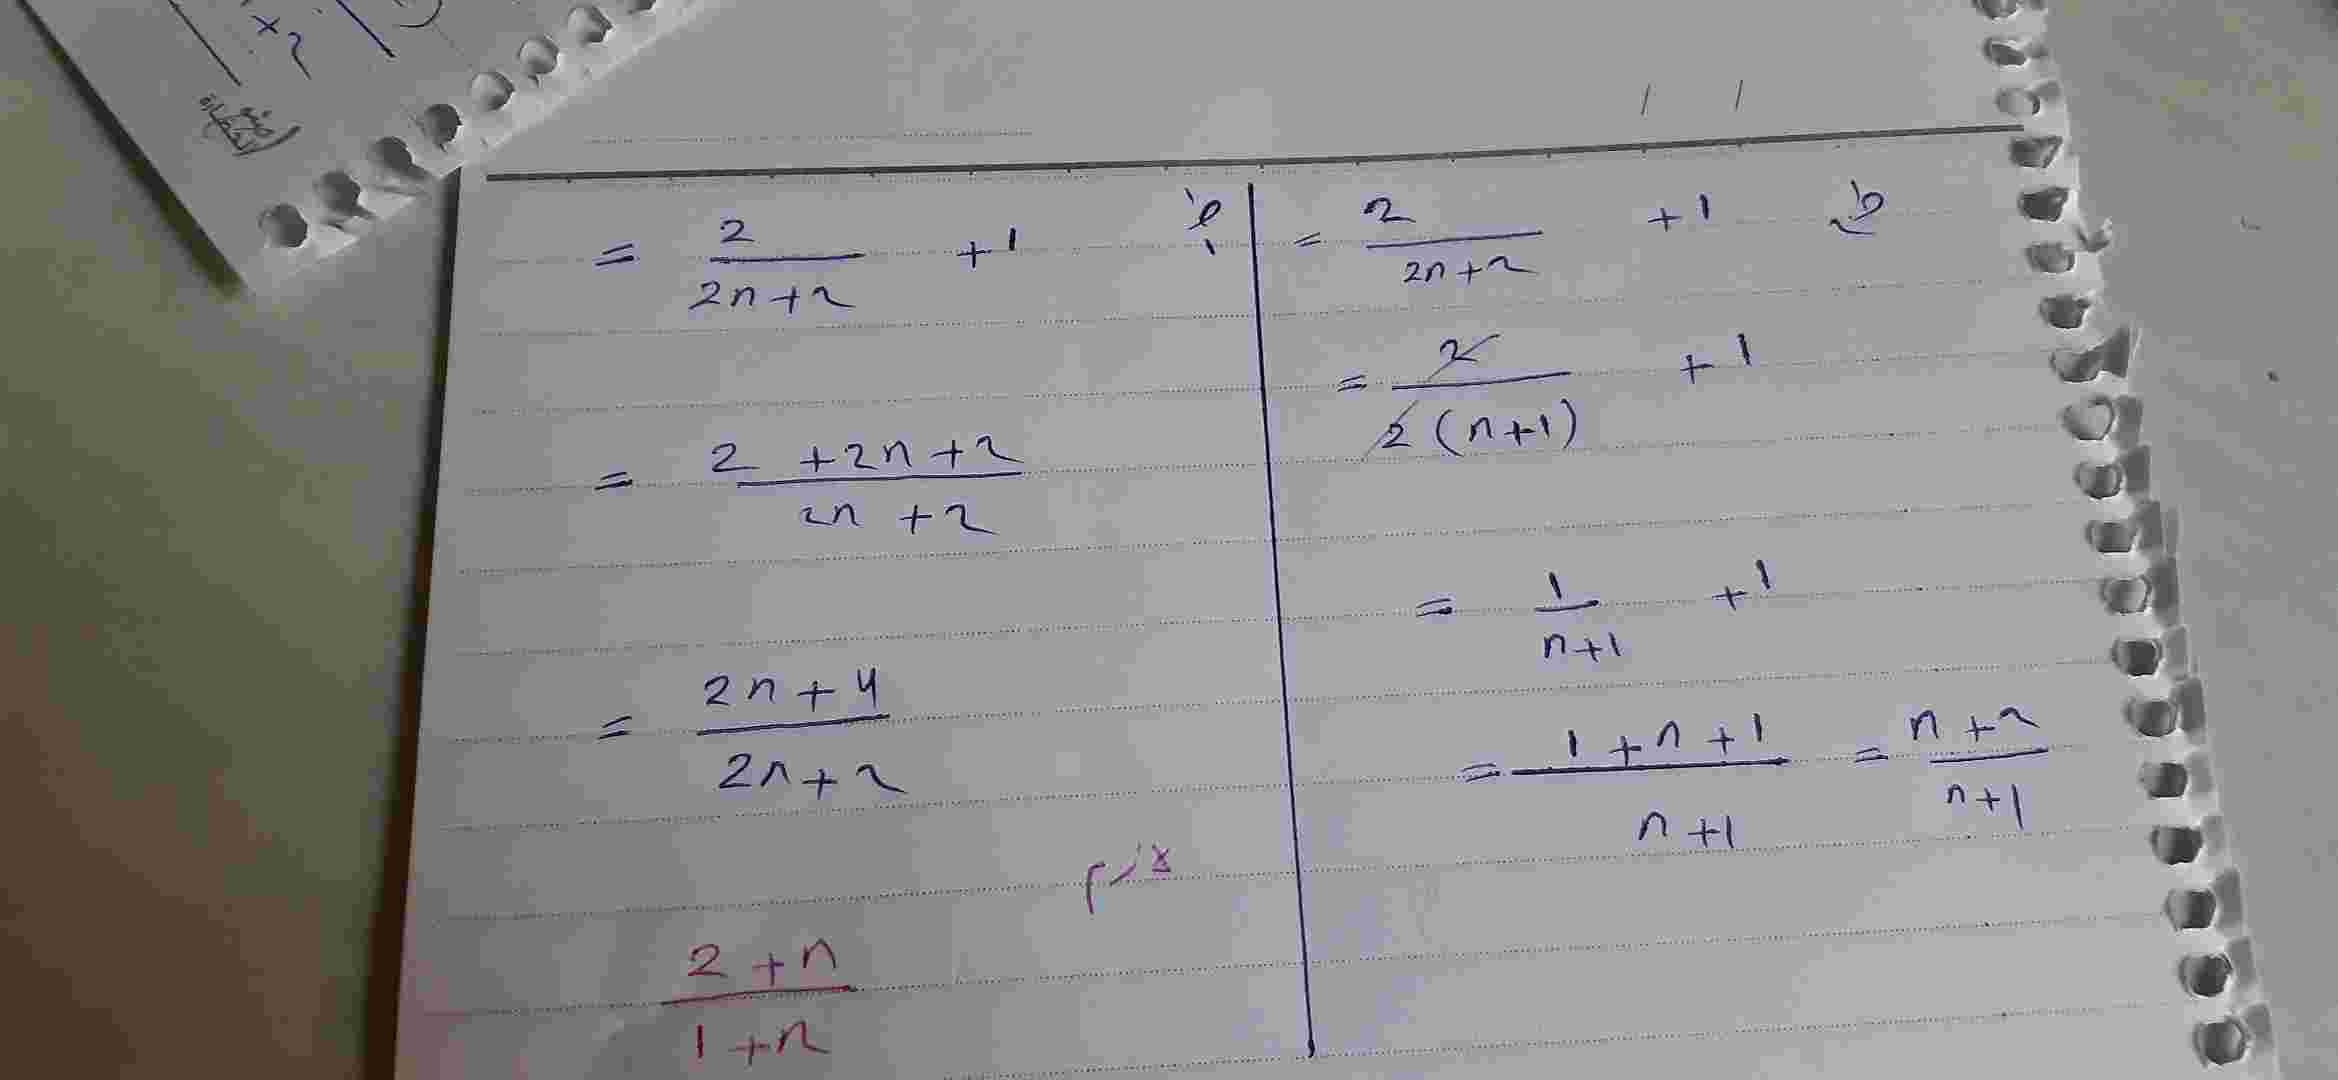 = 2/(2n+2) +1
= (2 +2n+2)/(2n +2)
= (2n+4)/(2n+2)
لازم
(2+n)/(1+n)
= 2/(2n+2) +1
= 2/(2(n+1)) +1
= 1/(n+1) +1
= (1+n+1)/(n+1) = (n+2)/(n+1)